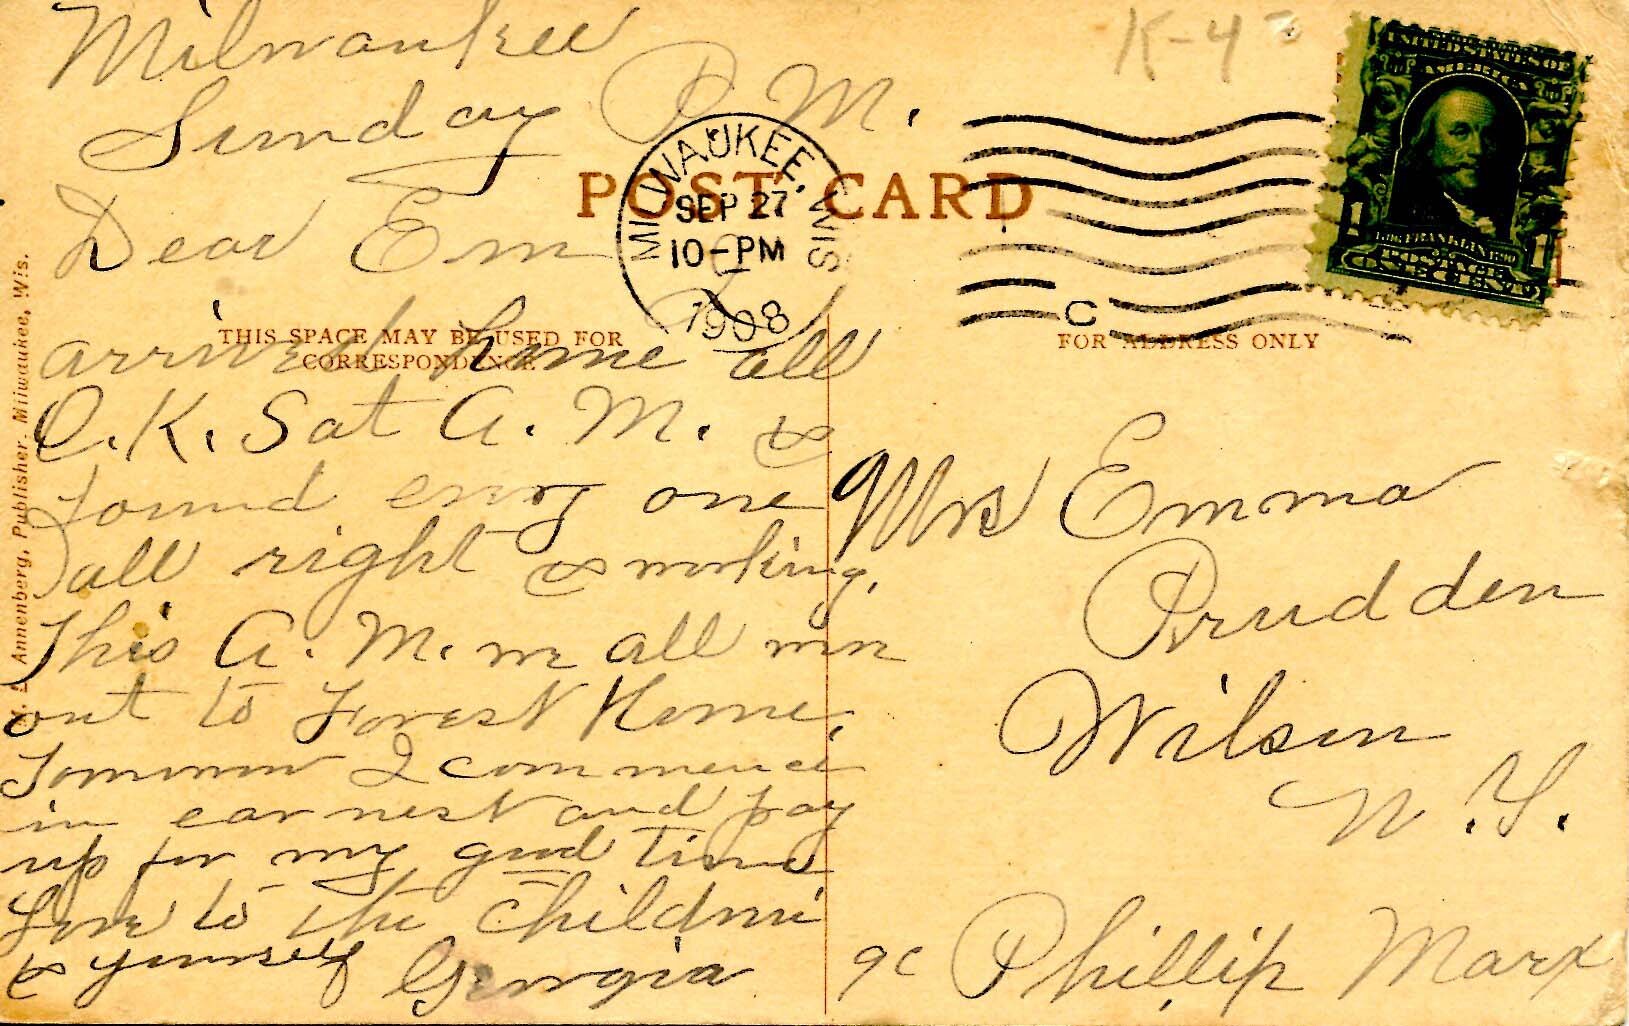 Milwaukee
Sunday P.M.
Dear Em
arrived home all
O.K. Sat A.M. &
found every one
all right & working.
This A.M. we all were
out to Forest Home.
Tomorrow I commence
in earnest and pay
up for my good time
Love to the children
& yourself Georgia
POST CARD
THIS SPACE MAY BE USED FOR
CORRESPONDENCE
FOR ADDRESS ONLY
Annenberg, Publisher. Milwaukee, Wis.
MILWAUKEE, WIS
SEP 27
10-PM
1908
C
K-4
UNITED STATES OF
AMERICA
FRANKLIN
POSTAGE
1 1
ONE CENT
Mrs Emma
Prudden
Wilson
N.Y.
Phillip Marx